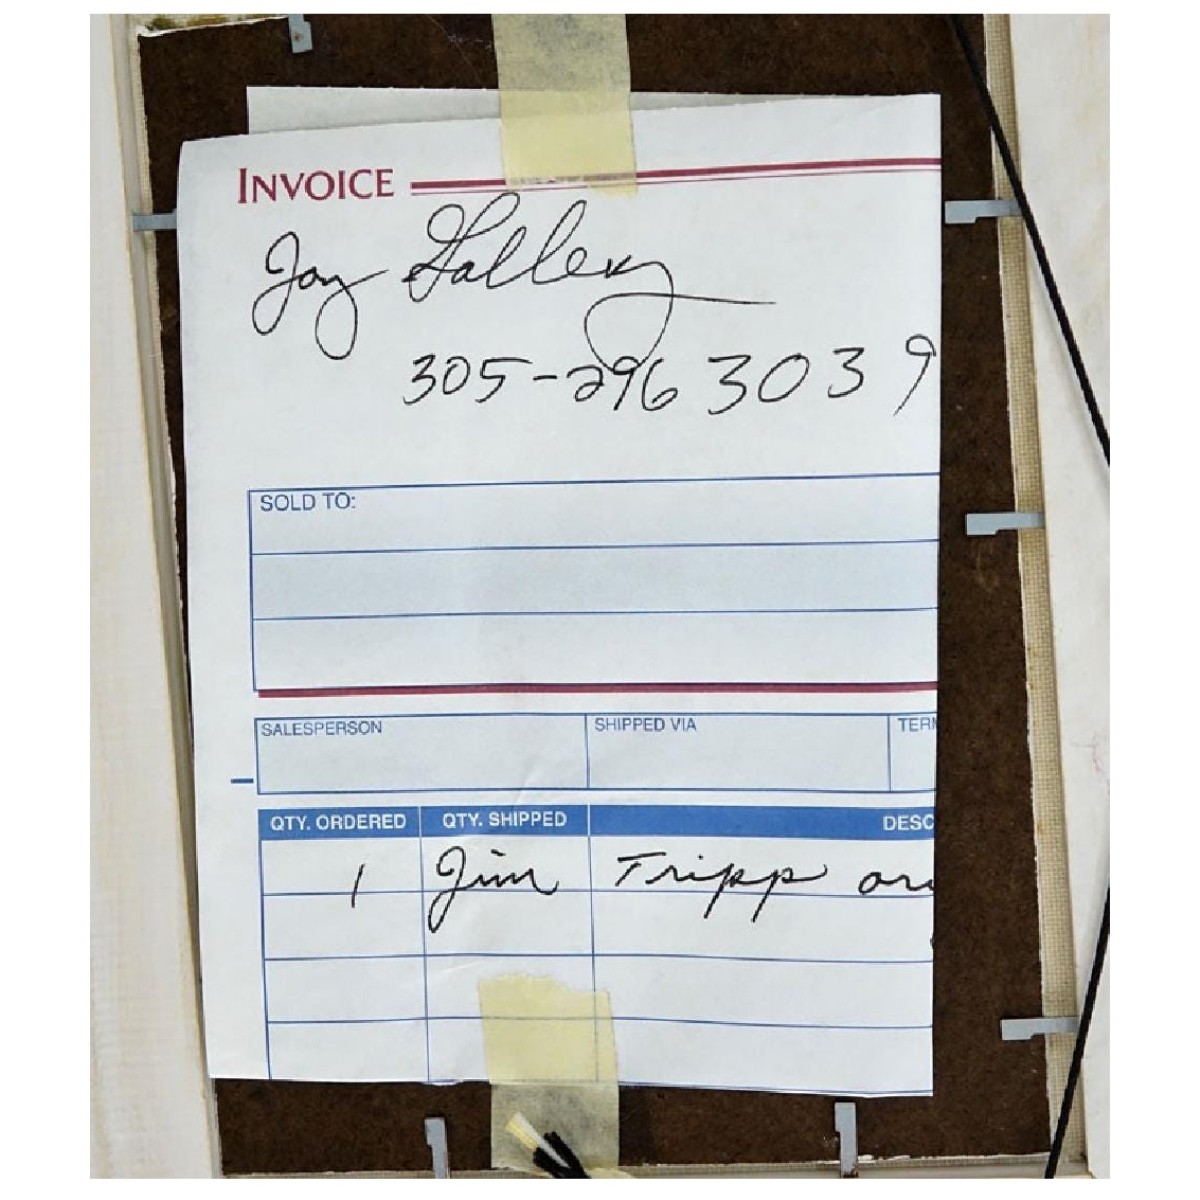 INVOICE
Joy Gallery
305-296 3039
SOLD TO:
SALESPERSON SHIPPED VIA TERM
QTY. ORDERED QTY. SHIPPED DESC
1 Jim Tripp